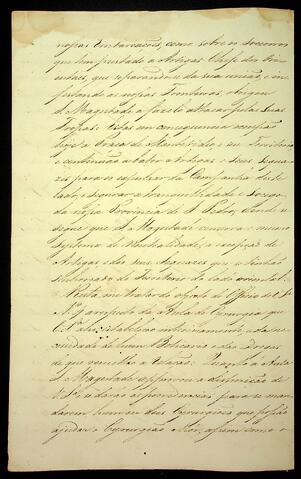 nossas Embarcaçoens, como sobre os soccorros
que tem prestado a Artigas Chefe dos Ori-
entaes, que separando-se da sua união, e in-
sultando as nossas Fronteiras, obrigou
S. Magestade a fazelo atacar pelas Suas
Tropas: Estas em consequencia
hoje a Praça de Montevideo, e seu Territorio,
e continuão a bater Artigas e seus sequa-
zes para os expulsar da Campanha deste
lado, e segurar a tranquillidade e socego
da nossa Provincia de S. Pedro, donde se
segue que S. Magestade conserva o mesmo
systema de Neutralidade, a excepção de
Artigas e dos seus sequazes que o tinhão
do Territorio do lado oriental.
Resta-me tratar do objecto do Officio de V. S.
N.º 9 a respeito da Aula de Cirurgia, que
V. S.
de hum Boticario e das Drogas
de que remetteo a relação: Quanto á Aula
S. Magestade approvou a disposição de
V. S. e dará as providencias para se man-
darem hum ou dous Cirurgioens que possão
ajudar o Cyrurgião Mor, assim como o